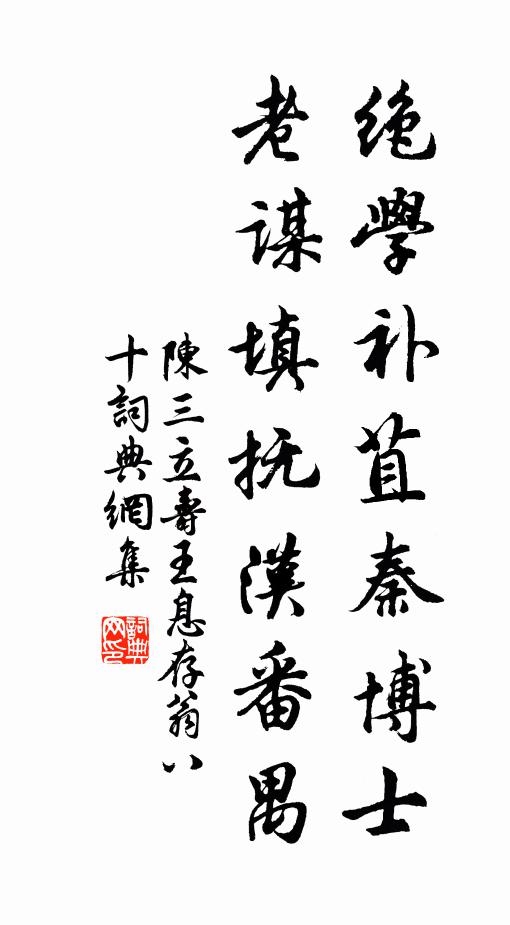 绝學补苴秦博士
老謀填抚漢番禺
陳三立壽王息存翁八
十詞典網集
詞典网印